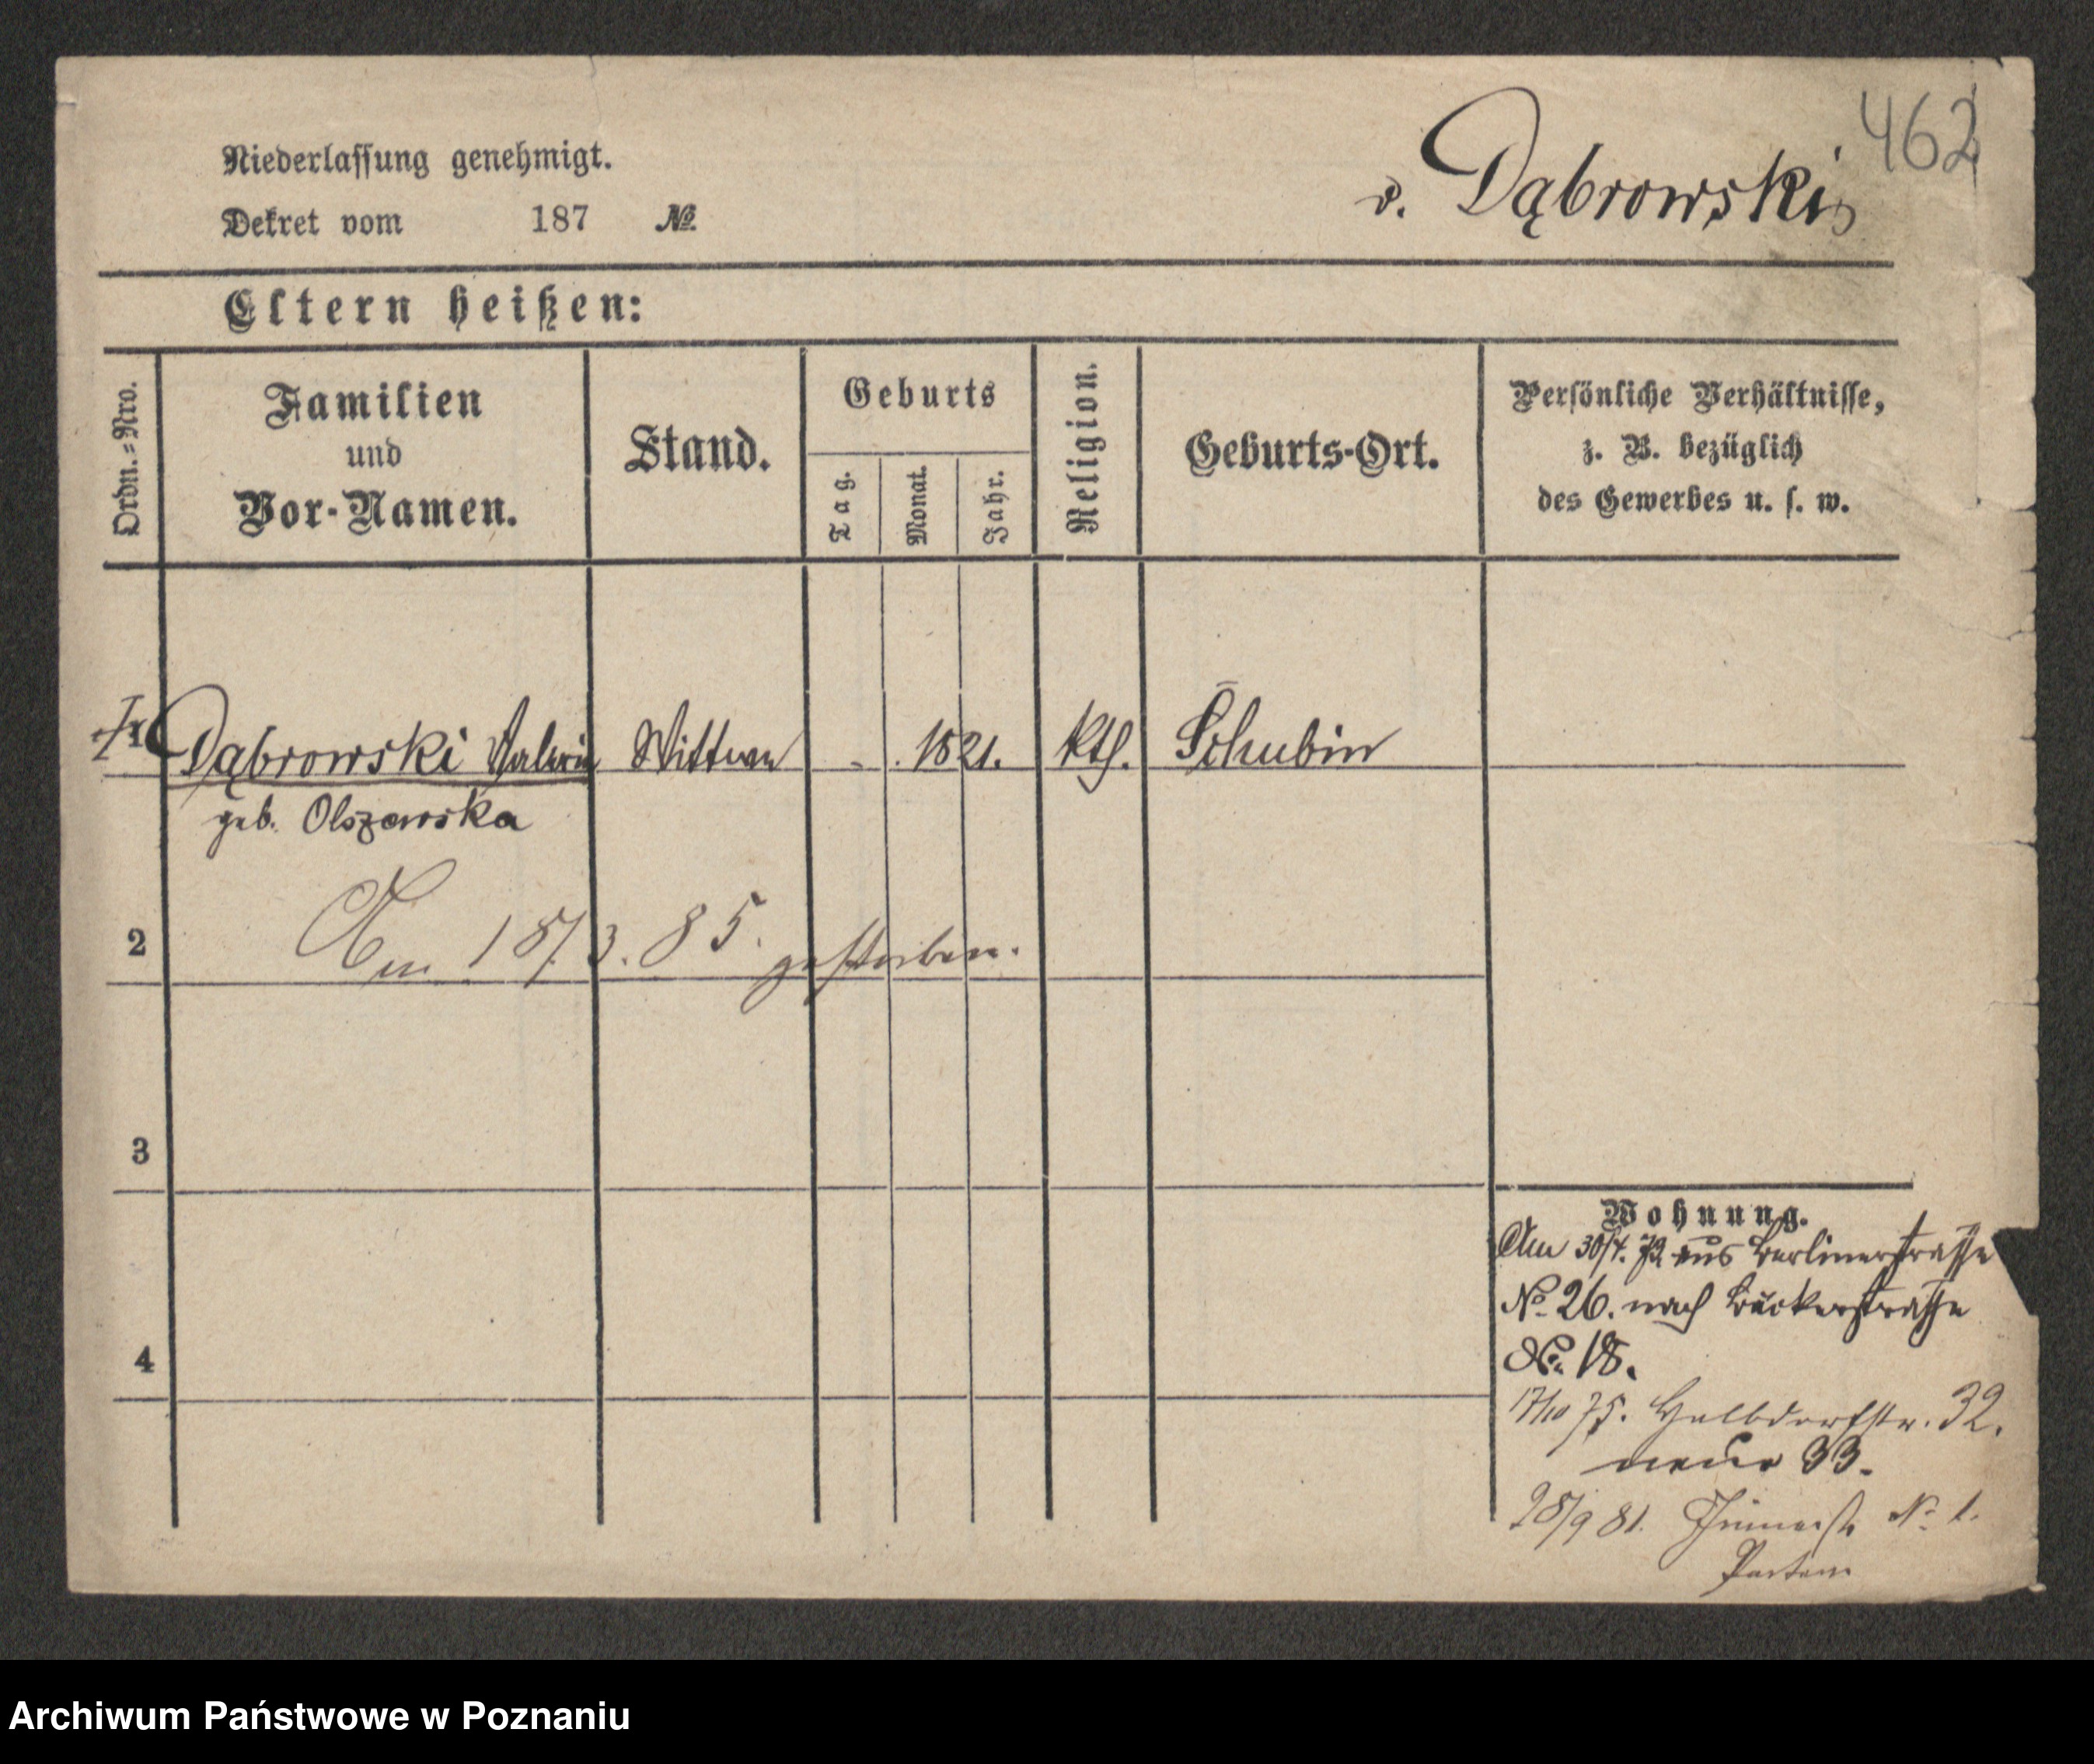 462
Niederlassung genehmigt.
v. Dąbrowski
Dekret vom 187 №
Eltern heißen:
Ordn.-Nro.
Familien
und
Vor-Namen.
Stand.
Geburts
Tag.
Monat.
Jahr.
Religion.
Geburts-Ort.
Persönliche Verhältnisse,
z. B. bezüglich
des Gewerbes u. s. w.
1 Dąbrowski Valerie Wittwe - . 1821. kth. Schubin
geb. Olszewska
2 Am 18/3. 85. gestorben.
3
4
Wohnung.
Am 30/4. 72 aus Berlinerstrasse
No. 26. nach Bäckerstrasse
No. 18.
17/10 75. Halbdorfstr. 32.
neue 33.
28/9 81. No. 1.
Archiwum Państwowe w Poznaniu